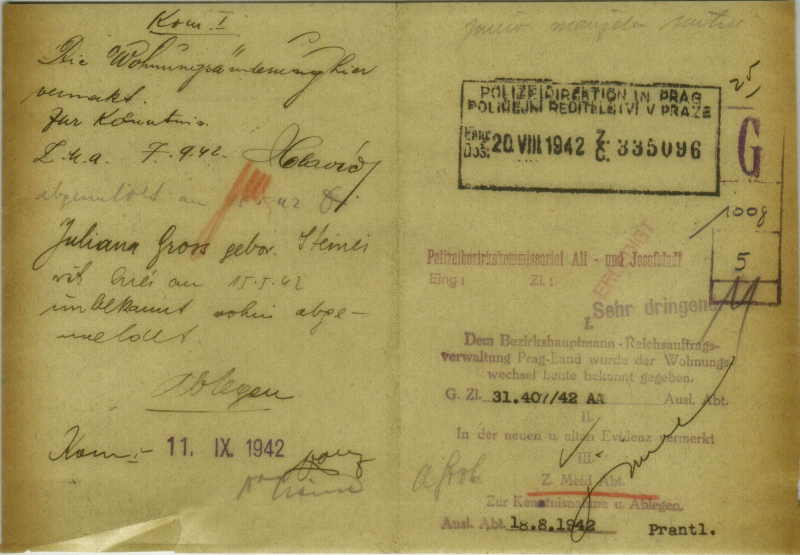 Kom. I
Die Wohnungsänderung hier
vermerkt.
Zur Kenntnis.
7.9.42.
abgemeldet am 15.5.42
Juliana Gross gebor. Steiner
ist hier am 15.5.42
unbekannt wohin abge-
meldet.
Ablegen
Kom. I 11. IX. 1942
25
POLIZEIDIREKTION IN PRAG
POLICEJNÍ ŘEDITELSTVÍ V PRAZE
EING. DOŠ. 20. VIII 1942 Z. Č. 335096
G
1008
5
Polizeibezirkskommissariat Alt - und Josefstadt
Eing: Zl.:
ERLEDIGT
Sehr dringend
I.
Dem Bezirkshauptmann - Reichsauftrags-
verwaltung Prag-Land wurde der Wohnungs
wechsel heute bekannt gegeben.
G. Zl. 31.407/42 AA Ausl. Abt.
II.
In der neuen u alten Evidenz vermerkt
III.
Z. Meld Abt.
Zur Kenntnisnahme u. Ablegen.
Ausl. Abt. 18.8.1942 Prantl.